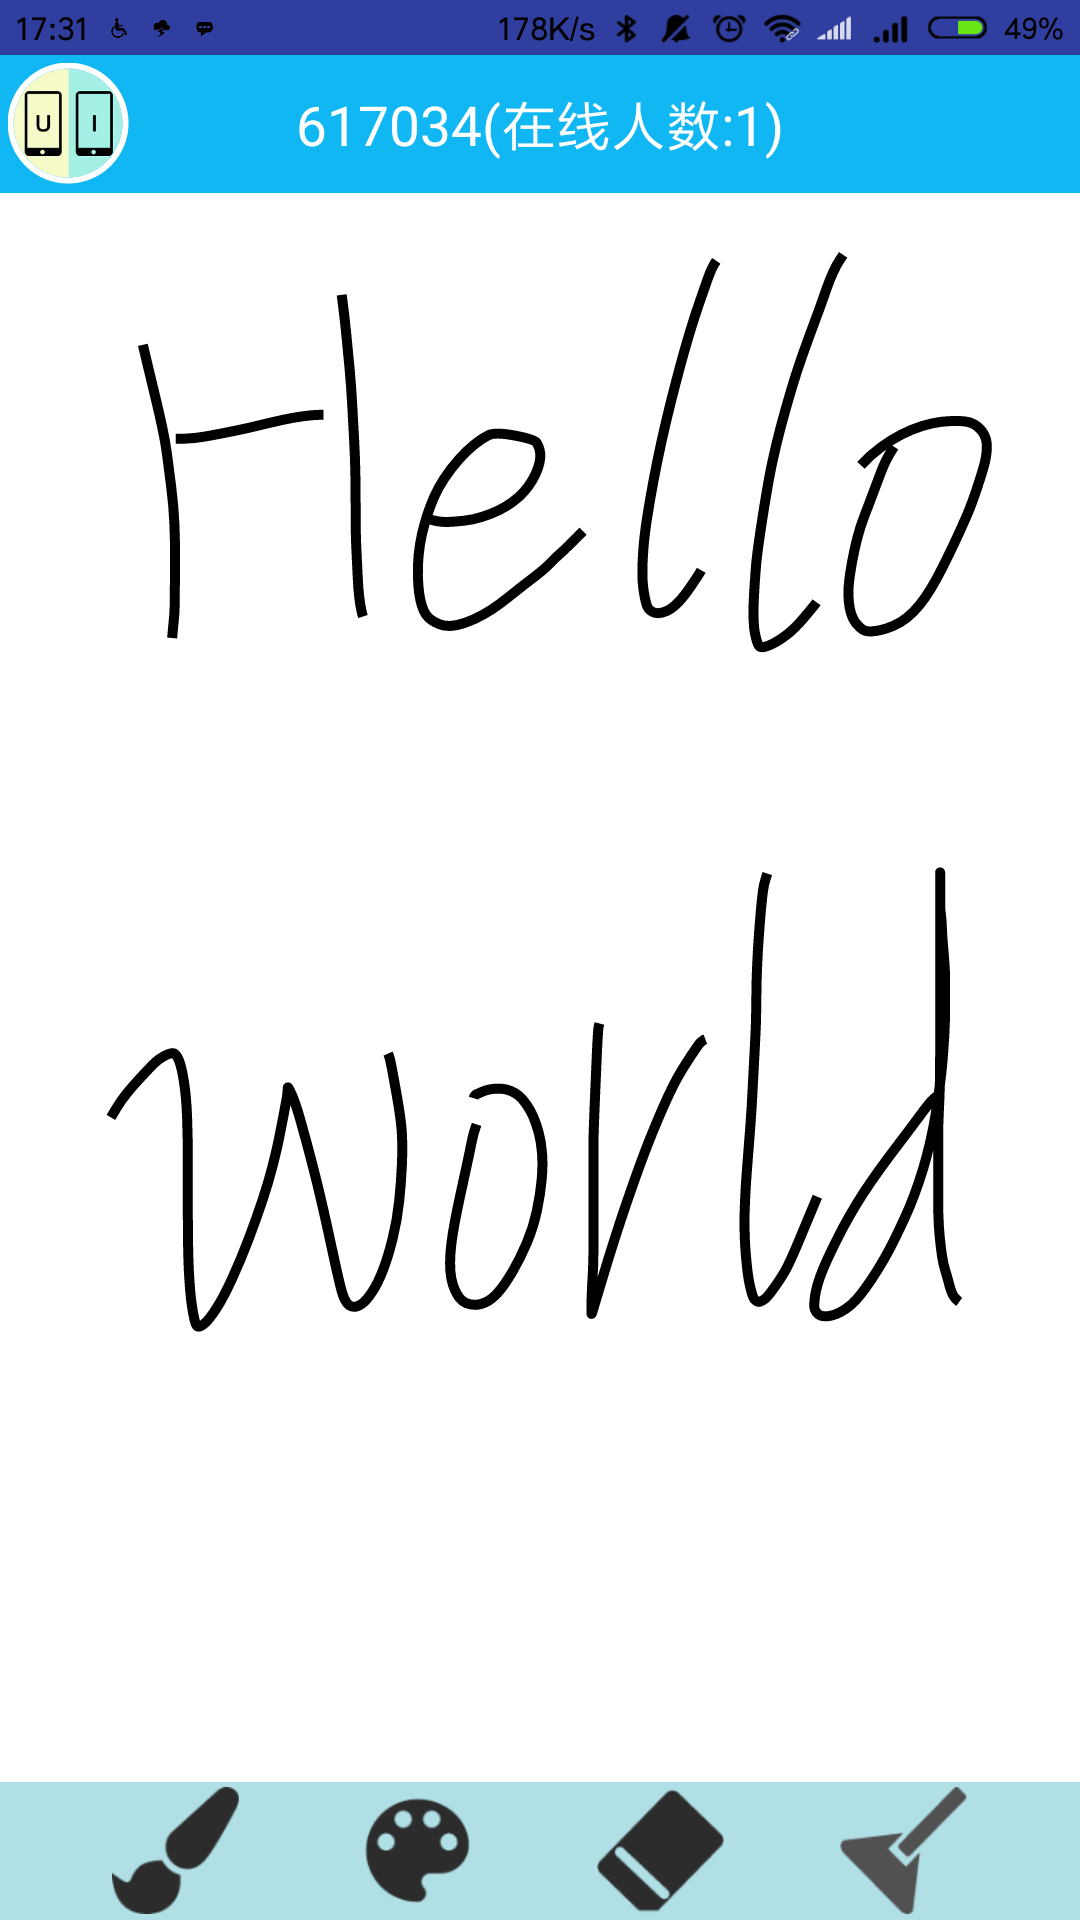 17:31 178K/s 49%
U I 617034(在线人数:1)
Hello
world